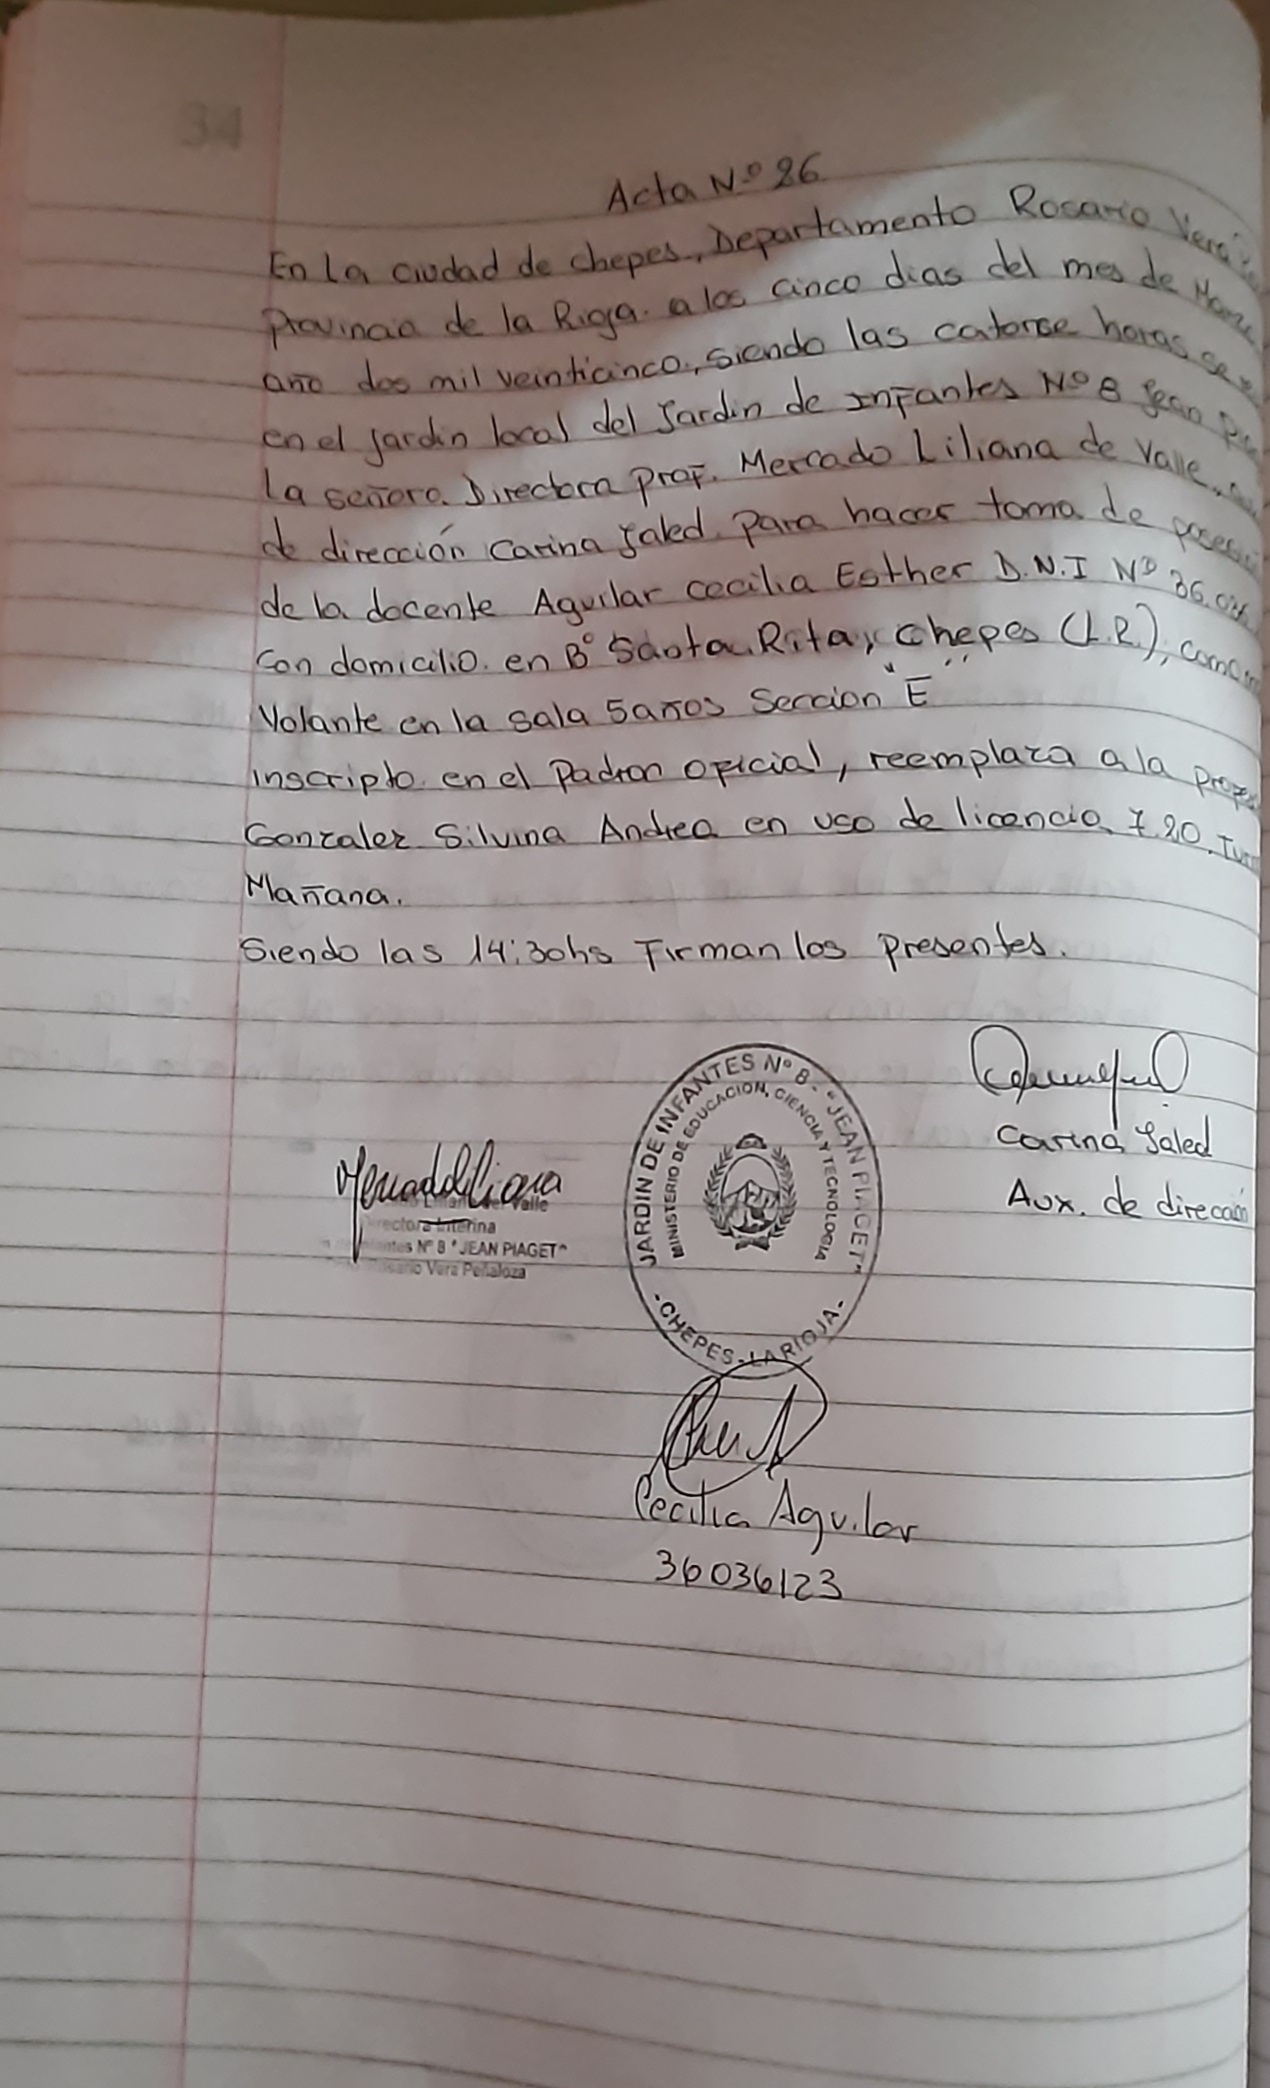 34
Acta N.º 26
En La ciudad de chepes, Departamento Rosario Vera
Provincia de la Rioja. a los cinco dias del mes de
año dos mil veinticinco, siendo las catorse horas se
en el jardin local del Jardin de Infantes Nº 8 Jean
La señora. Directora prof. Mercado Liliana de Valle,
de dirección Carina Jaled. para hacer toma de
de la docente Aguilar cecilia Esther D.N.I Nº 36.
con domicilio. en Bº Santa Rita, Chepes (L.R.), como
Volante en la sala 5años Seccion "E"
inscripto. en el Padron oficial, reemplaza a la
Gonzalez Silvina Andrea en uso de licencia 7.20.
Mañana.
Siendo las 14:30hs Firman los presentes.
JARDIN DE INFANTES Nº 8 - "JEAN PIAGET"
MINISTERIO DE EDUCACION, CIENCIA Y TECNOLOGIA
- CHEPES - LA RIOJA -
Carina Jaled
Aux. de dirección
Mercado Liliana
Valle
Interina
Nº 8 "JEAN PIAGET"
Rosario Vera Peñaloza
Cecilia Aguilar
36036123